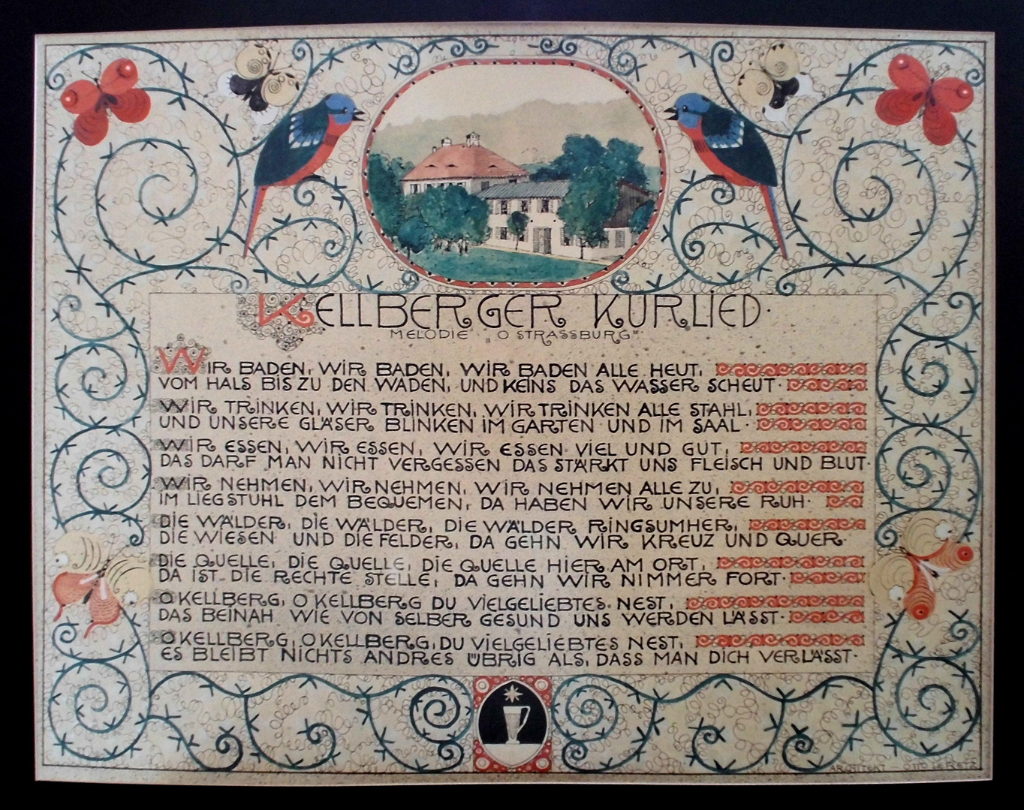 KELLBERGER KURLIED·
MELODIE „O STRASSBURG"
WIR BADEN, WIR BADEN, WIR BADEN ALLE HEUT,
VOM HALS BIS ZU DEN WADEN, UND KEINS DAS WASSER SCHEUT·
WIR TRINKEN, WIR TRINKEN, WIR TRINKEN ALLE STAHL,
UND UNSERE GLÄSER BLINKEN IM GARTEN UND IM SAAL·
WIR ESSEN, WIR ESSEN, WIR ESSEN VIEL UND GUT,
DAS DARF MAN NICHT VERGESSEN DAS STÄRKT UNS FLEISCH UND BLUT·
WIR NEHMEN, WIR NEHMEN, WIR NEHMEN ALLE ZU,
IM LIEGSTUHL DEM BEQUEMEN, DA HABEN WIR UNSERE RUH·
DIE WÄLDER, DIE WÄLDER, DIE WÄLDER RINGSUMHER,
DIE WIESEN UND DIE FELDER, DA GEHN WIR KREUZ UND QUER·
DIE QUELLE, DIE QUELLE, DIE QUELLE HIER AM ORT,
DA IST DIE RECHTE STELLE, DA GEHN WIR NIMMER FORT·
O KELLBERG, O KELLBERG DU VIELGELIEBTES NEST,
DAS BEINAH WIE VON SELBER GESUND UNS WERDEN LÄSST·
O KELLBERG, O KELLBERG, DU VIELGELIEBTES NEST,
ES BLEIBT NICHTS ANDRES ÜBRIG ALS, DASS MAN DICH VERLÄSST·
ARCHITEKT OTTO